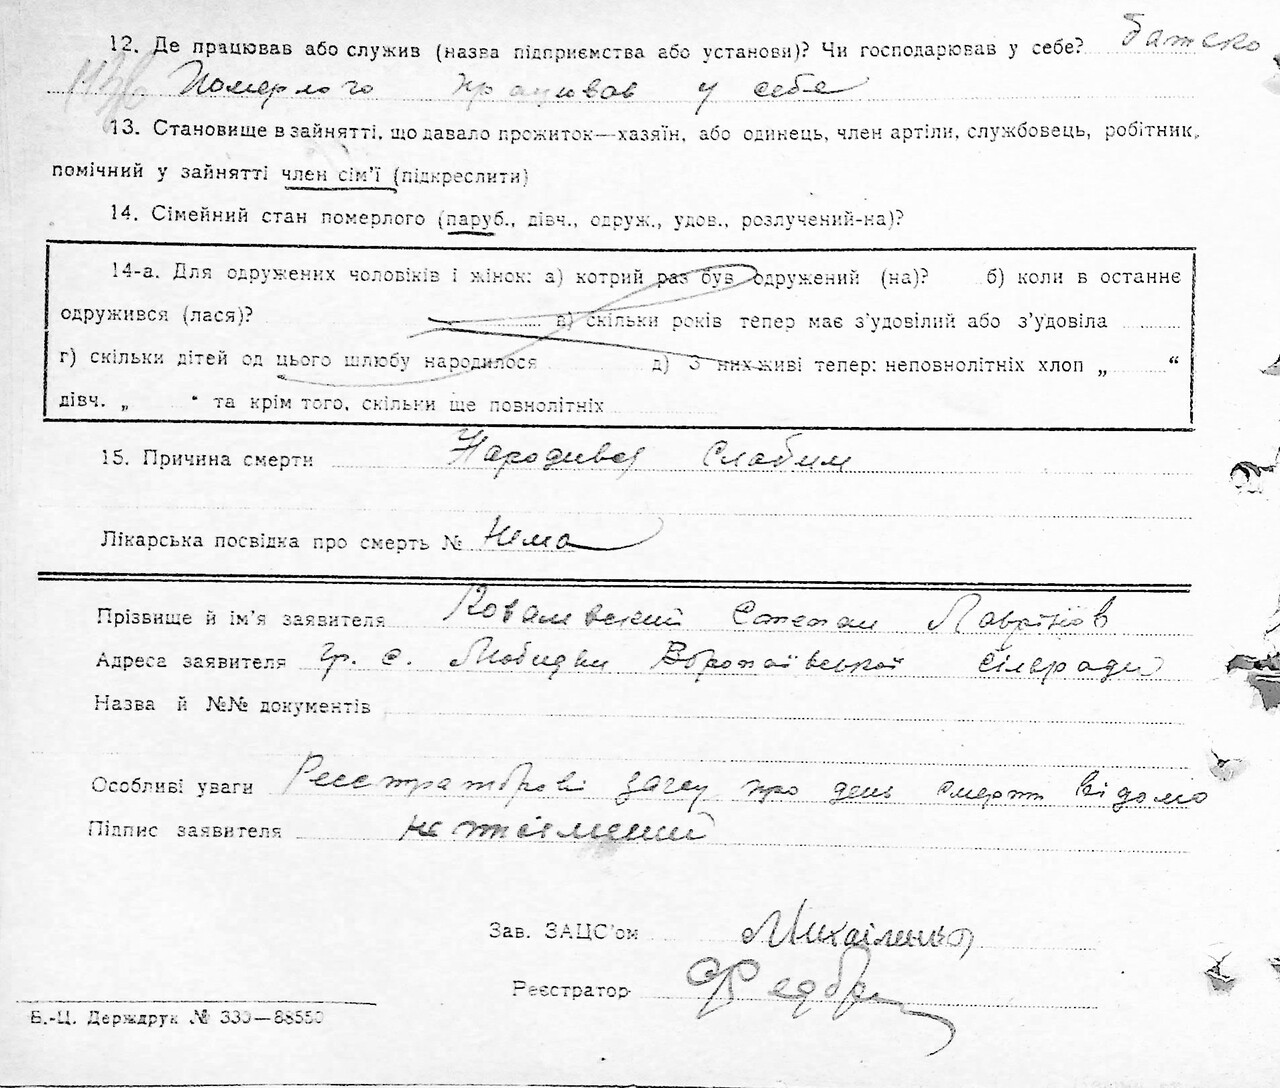 12. Де працював або служив (назва підприємства або установи)? Чи господарював у себе? батько
померлого працював у себе
13. Становище в зайнятті, що давало прожиток—хазяїн, або одинець, член артіли, службовець, робітник,
помічний у зайнятті член сім'ї (підкреслити)
14. Сімейний стан померлого (паруб., дівч., одруж., удов., розлучений-на)?
14-а. Для одружених чоловіків і жінок: а) котрий раз був одружений (на)? б) коли в останнє
одружився (лася)? в) скільки років тепер має з'удовілий або з'удовіла
г) скільки дітей од цього шлюбу народилося д) З них живі тепер: неповнолітніх хлоп „ “
дівч. „ “ та крім того, скільки ще повнолітніх
15. Причина смерти Народився слабим
Лікарська посвідка про смерть № Нема
Прізвище й ім'я заявителя Ковалевский Степан Лаврінов
Адреса заявителя гр. с. сільради
Назва й №№ документів
Особливі уваги Реєстраторові загсу про день смерти відомо
Підпис заявителя не писменний
Зав. ЗАЦС'ом Михайленко
Реєстратор
Б.-Ц. Держдрук № 330—88550